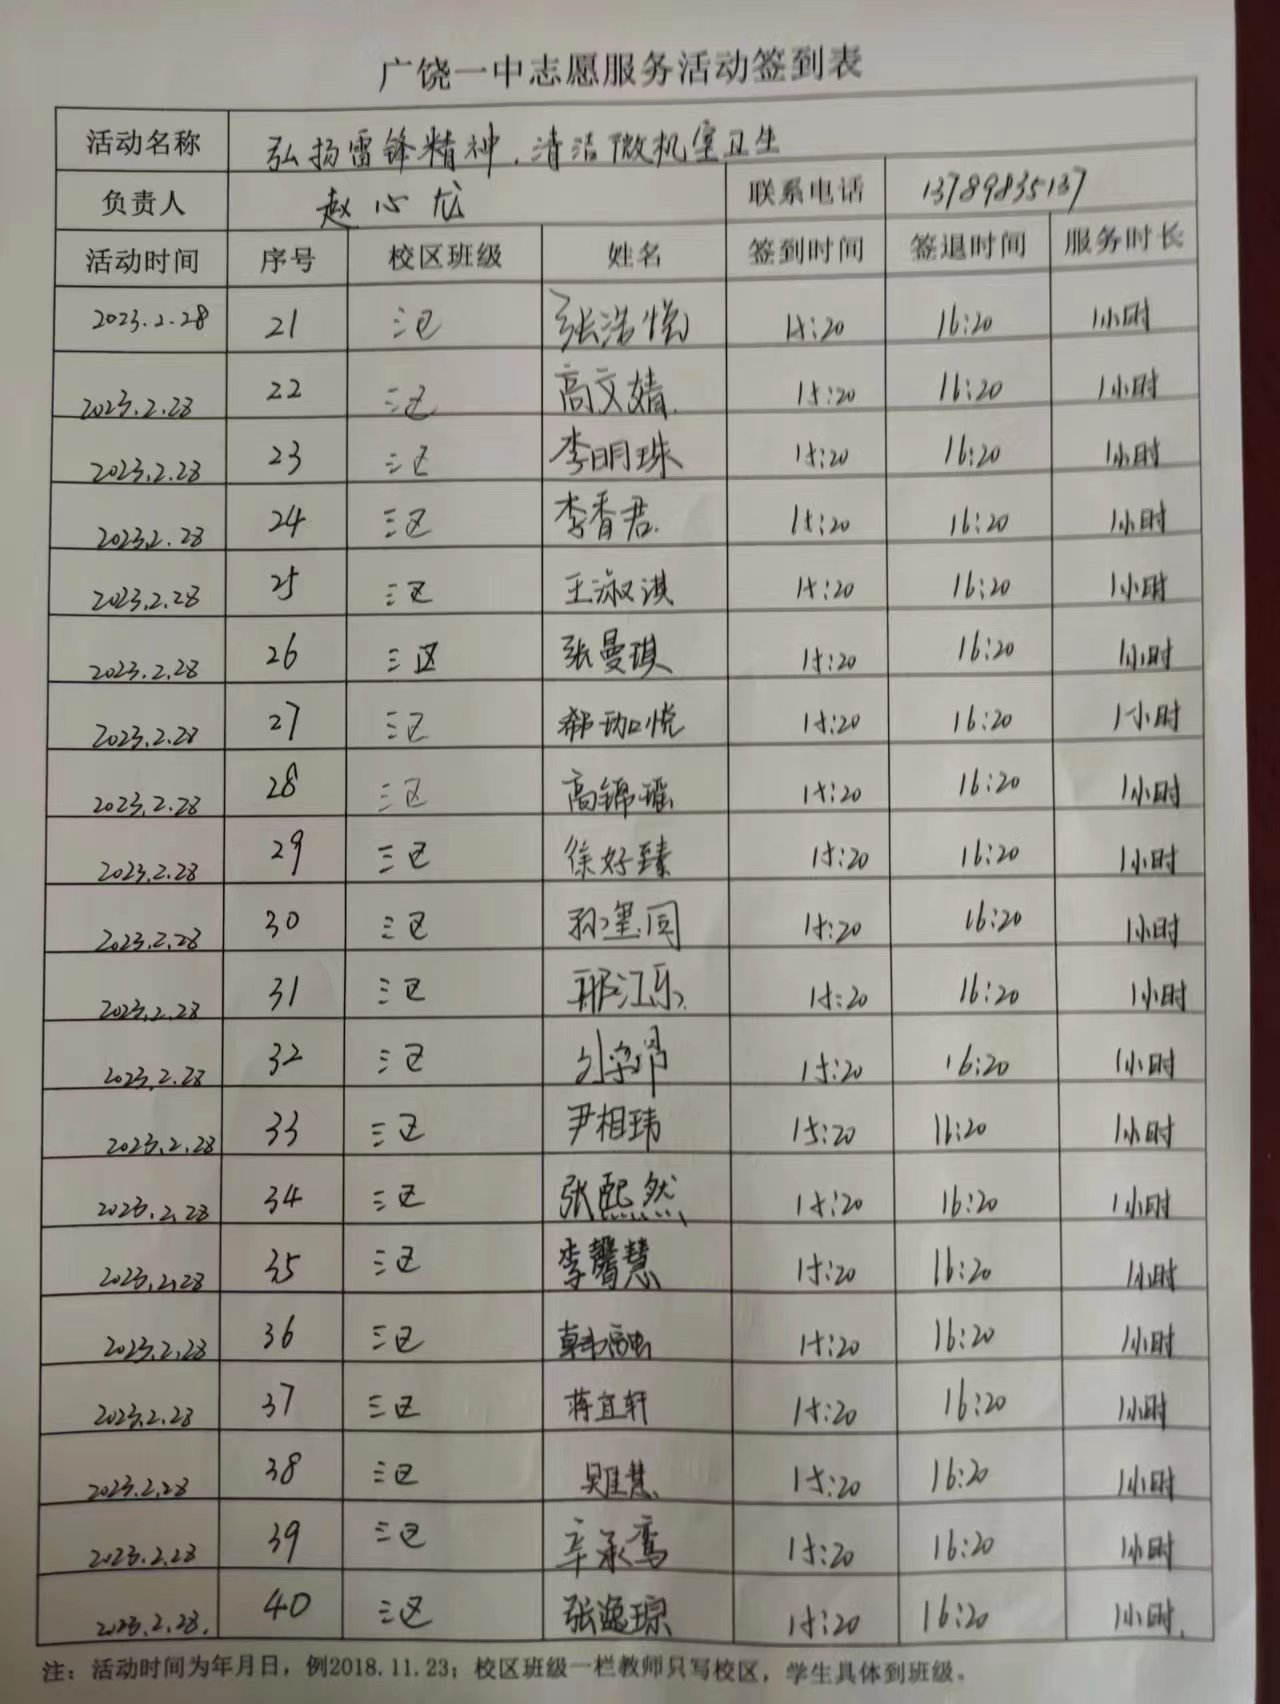 广饶一中志愿服务活动签到表
活动名称 弘扬雷锋精神,清洁微机室卫生
负责人 赵心龙 联系电话 13789835137
活动时间 序号 校区班级 姓名 签到时间 签退时间 服务时长
2023.2.28 21 三区 张浩悦 15:20 16:20 1小时
2023.2.28 22 三区 高文婧 15:20 16:20 1小时
2023.2.28 23 三区 李明珠 15:20 16:20 1小时
2023.2.28 24 三区 李香君 15:20 16:20 1小时
2023.2.28 25 三区 王淑淇 15:20 16:20 1小时
2023.2.28 26 三区 张曼琪 15:20 16:20 1小时
2023.2.28 27 三区 15:20 16:20 1小时
2023.2.28 28 三区 高锦瑶 15:20 16:20 1小时
2023.2.28 29 三区 徐好臻 15:20 16:20 1小时
2023.2.28 30 三区 15:20 16:20 1小时
2023.2.28 31 三区 15:20 16:20 1小时
2023.2.28 32 三区 15:20 16:20 1小时
2023.2.28 33 三区 尹相玮 15:20 16:20 1小时
2023.2.28 34 三区 张熙然 15:20 16:20 1小时
2023.2.28 35 三区 李馨慧 15:20 16:20 1小时
2023.2.28 36 三区 15:20 16:20 1小时
2023.2.28 37 三区 蒋宜轩 15:20 16:20 1小时
2023.2.28 38 三区 15:20 16:20 1小时
2023.2.28 39 三区 辛承鸾 15:20 16:20 1小时
2023.2.28. 40 三区 张逸琼 15:20 16:20 1小时
注：活动时间为年月日，例2018.11.23；校区班级一栏教师只写校区，学生具体到班级。